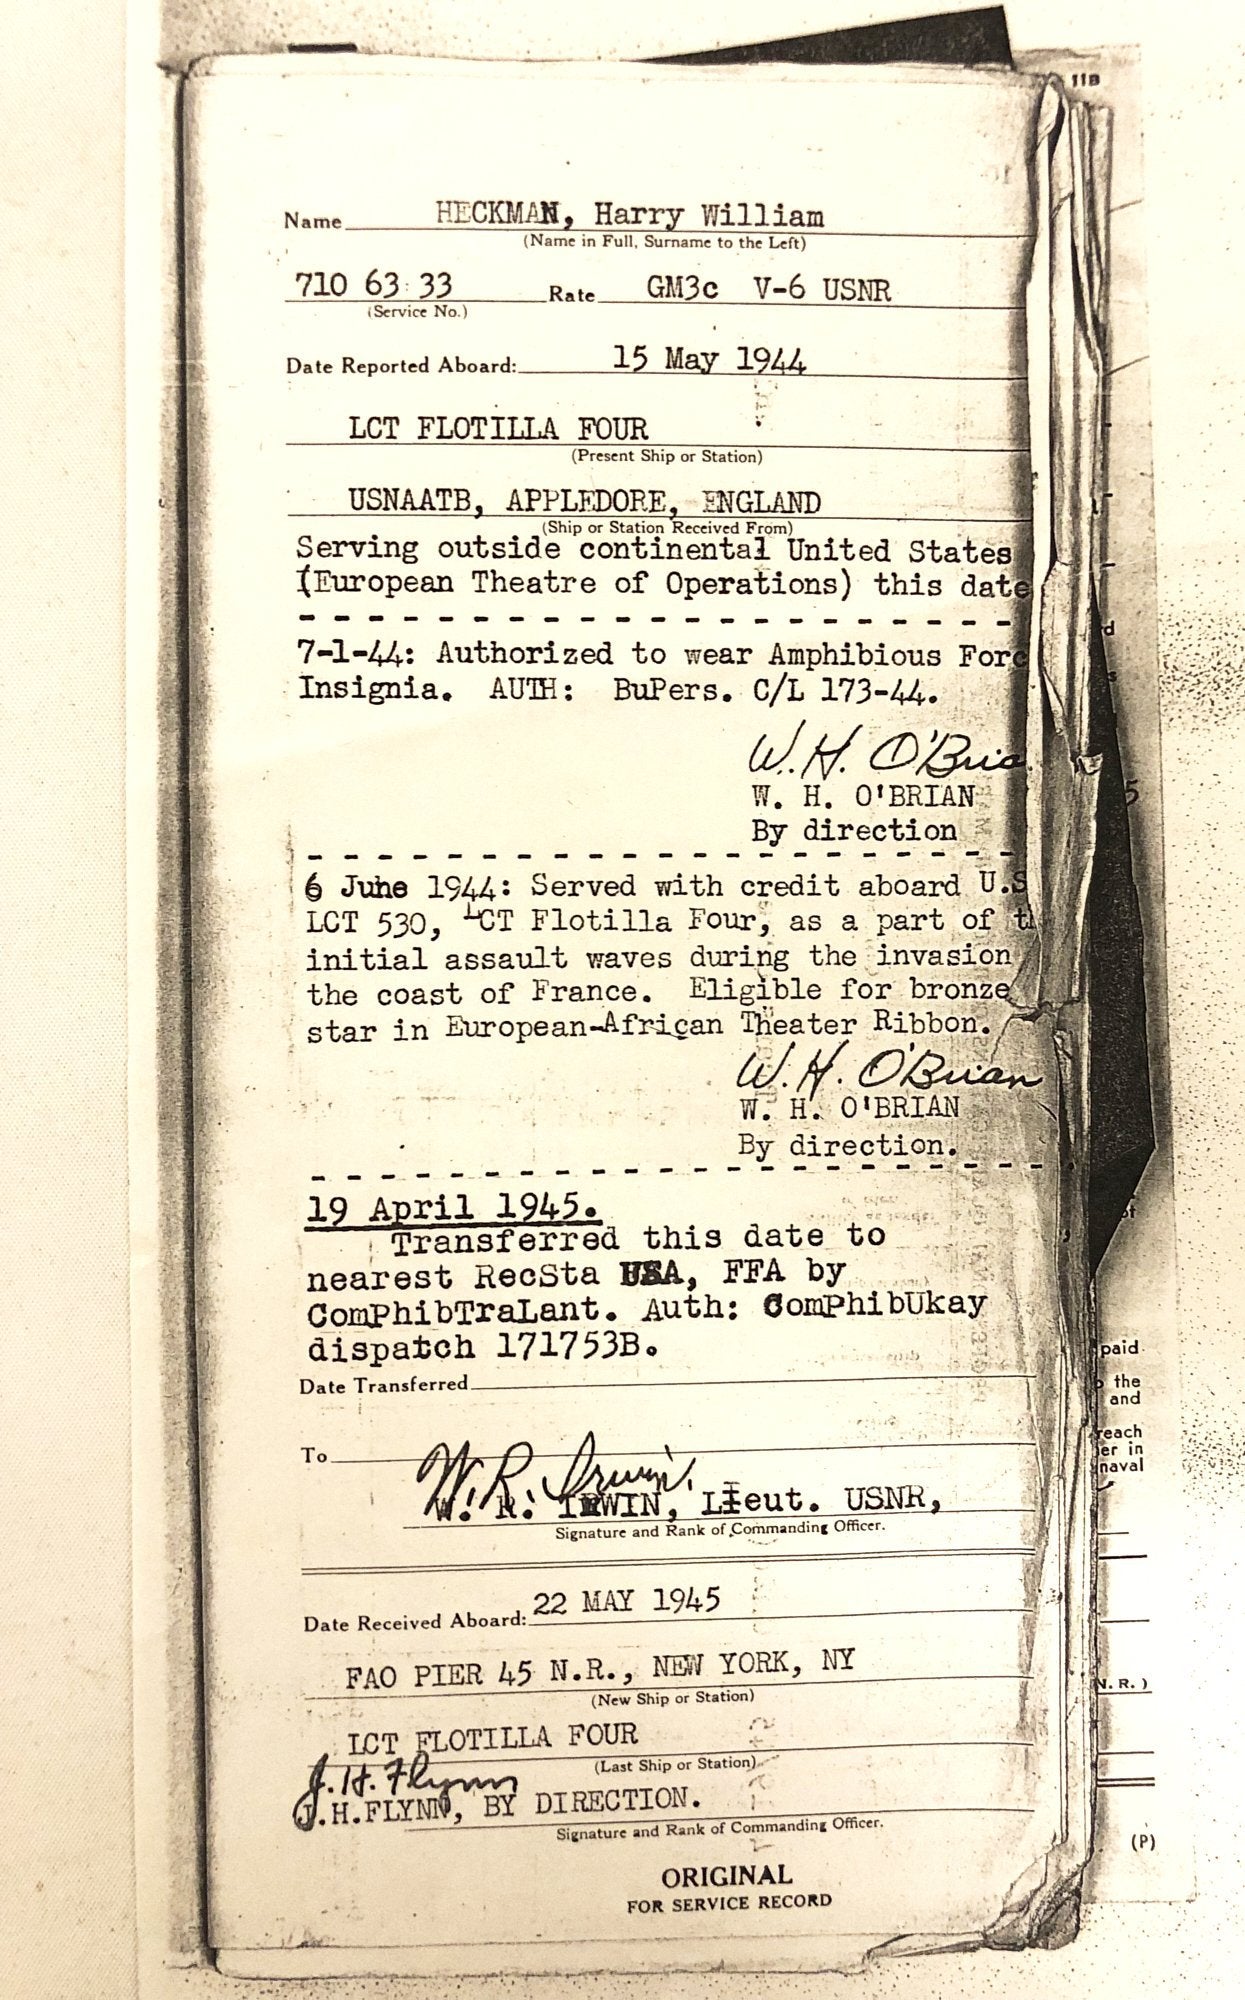 11B
Name HECKMAN, Harry William
(Name in Full, Surname to the Left)
710 63 33 Rate GM3c V-6 USNR
(Service No.)
Date Reported Aboard: 15 May 1944
LCT FLOTILLA FOUR
(Present Ship or Station)
USNAATB, APPLEDORE, ENGLAND
(Ship or Station Received From)
Serving outside continental United States
(European Theatre of Operations) this date
7-1-44: Authorized to wear Amphibious Forc
Insignia. AUTH: BuPers. C/L 173-44.
W. H. O'Bria
W. H. O'BRIAN
By direction
6 June 1944: Served with credit aboard U.S
LCT 530, LCT Flotilla Four, as a part of th
initial assault waves during the invasion
the coast of France. Eligible for bronze
star in European-African Theater Ribbon.
W. H. O'Brian
W. H. O'BRIAN
By direction.
19 April 1945.
Transferred this date to
nearest RecSta USA, FFA by
ComPhibTraLant. Auth: ComPhibUkay
dispatch 171753B.
Date Transferred
To
W. R. Irwin
W. R. IRWIN, Lieut. USNR,
Signature and Rank of Commanding Officer.
Date Received Aboard: 22 MAY 1945
FAO PIER 45 N.R., NEW YORK, NY
(New Ship or Station)
LCT FLOTILLA FOUR
(Last Ship or Station)
J. H. Flynn
J.H.FLYNN, BY DIRECTION.
Signature and Rank of Commanding Officer.
ORIGINAL
FOR SERVICE RECORD
paid
the
and
reach
er in
naval
N. R. )
(P)